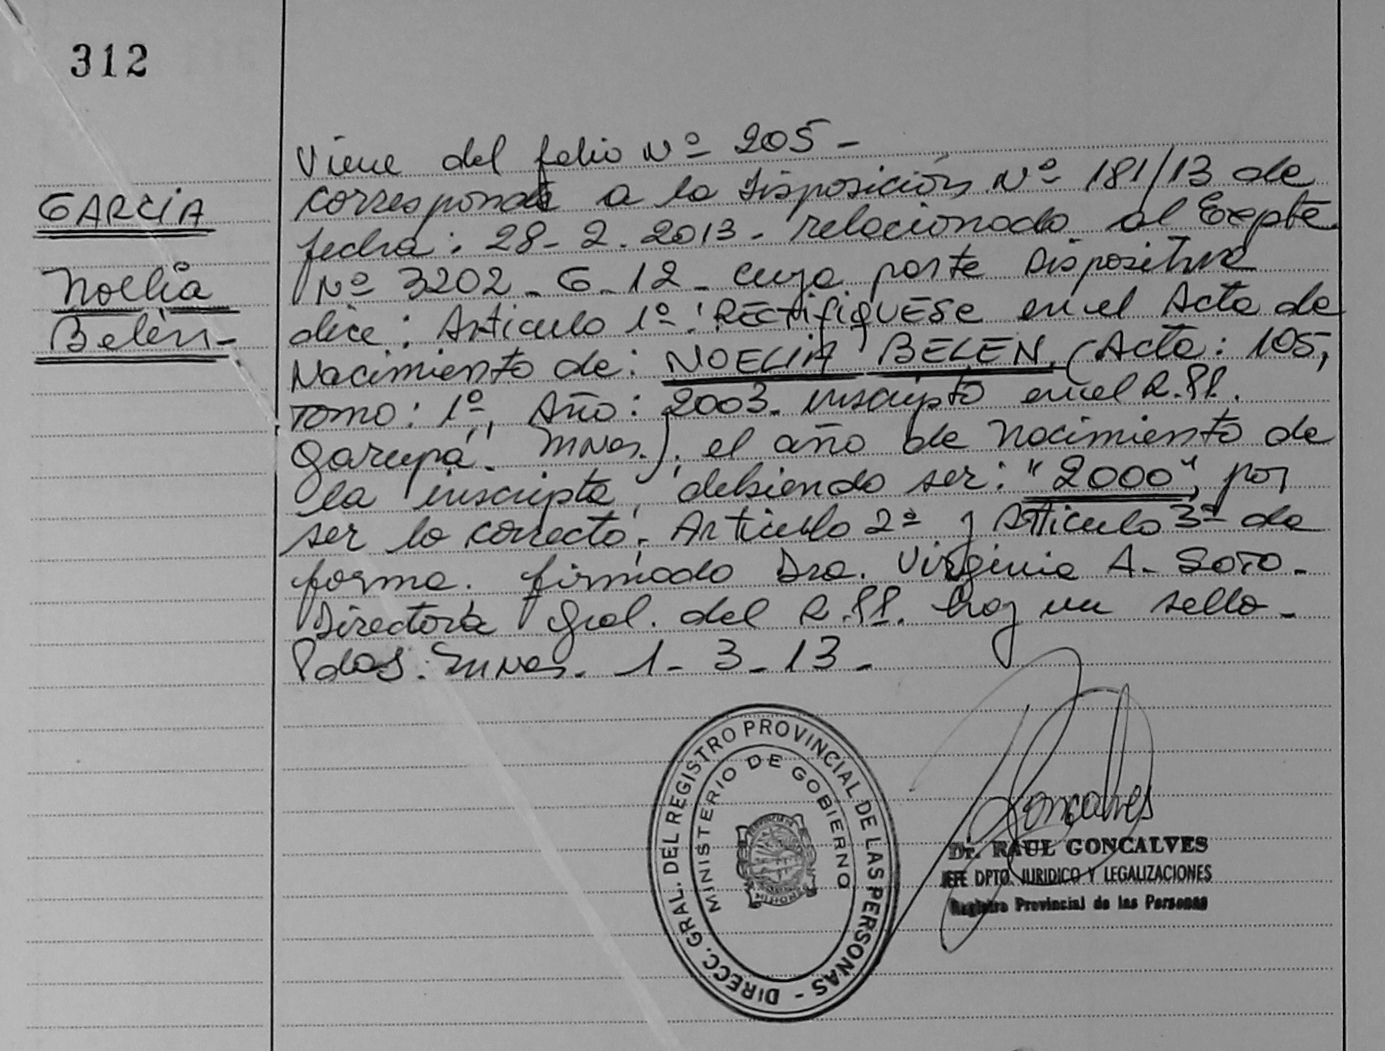 312
GARCIA
Noelia
Belén-
Viene del folio Nº 205-
corresponde a la Disposición Nº 181/13 de
fecha: 28-2-2013- relacionado al Expte
Nº 3202-G-12- cuya parte dispositiva
dice: Articulo 1º: RECTIFIQUESE en el Acta de
Nacimiento de: NOELIA BELEN, (Acta: 105,
Tomo: 1º, Año: 2003. inscripta en el R.PP.
Garupá. Mnes.). el año de nacimiento de
la inscripta, debiendo ser: "2000", por
ser lo correcto. Articulo 2º y Articulo 3º de
forma. firmado Dra. Virginia A. Soto-
Directora Gral. del R.PP. hay un sello-
Pdas. Mnes. 1-3-13-
DIRECC. GRAL. DEL REGISTRO PROVINCIAL DE LAS PERSONAS -
MINISTERIO DE GOBIERNO
Goncalves
Dr. RAUL GONCALVES
JEFE DPTO. JURIDICO Y LEGALIZACIONES
Registro Provincial de las Personas